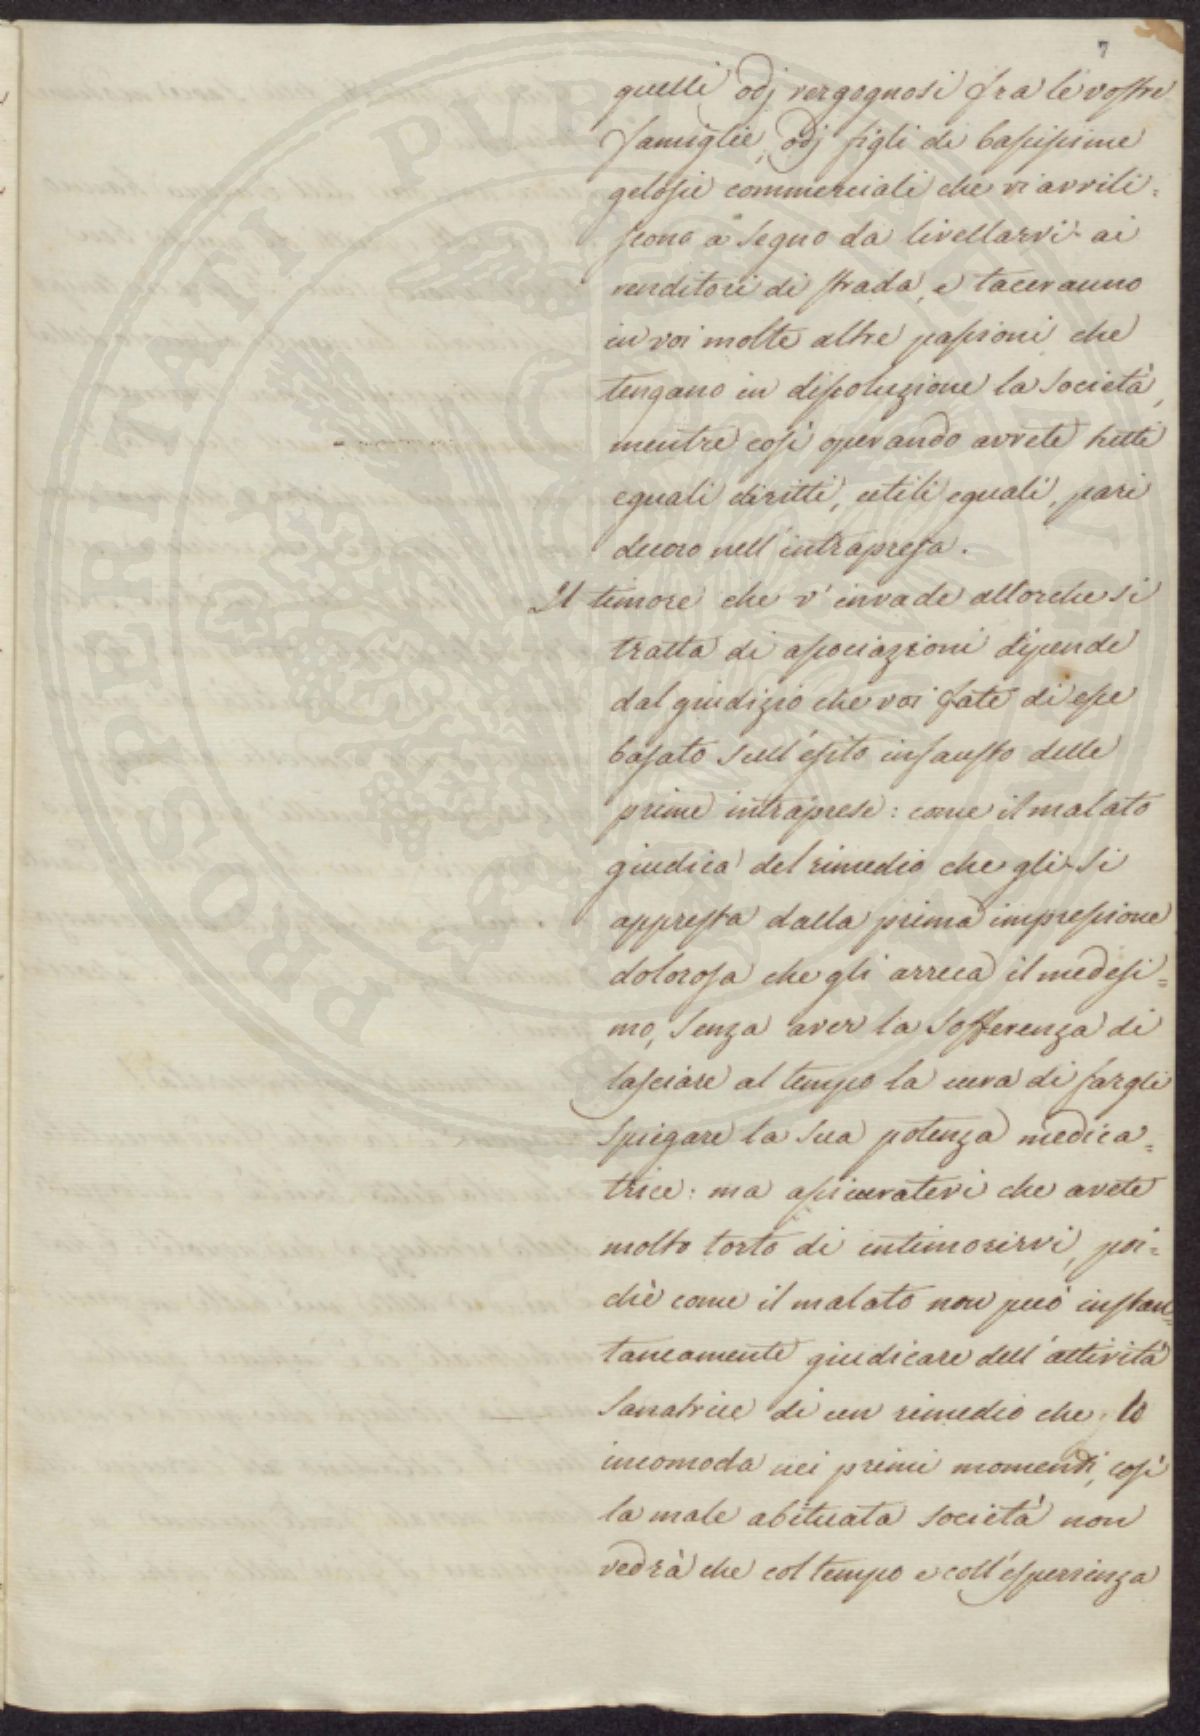 7
quelli odj vergognosi fra le vostre
famiglie, odj figli di bassissime
gelosie commerciali che vi avvili=
scono a segno da livellarvi ai
venditori di strada, e taceranno
in voi molte altre passioni che
tengano in dissoluzione la società,
mentre così operando avrete tutti
eguali diritti, utili eguali, pari
decoro nell'intrapresa.
Il timore che v'invade allorche si
tratta di associazioni dipende
dal giudizio che voi fate di esse
basato sull'esito infausto delle
prime intraprese: come il malato
giudica del rimedio che gli si
appresta dalla prima impressione
dolorosa che gli arreca il medesi=
mo, senza aver la sofferenza di
lasciare al tempo la cura di fargli
spiegare la sua potenza medica=
trice: ma assicuratevi che avete
molto torto di intimorirvi, poi=
chè come il malato non può instan=
taneamente giudicare dell'attività
sanatrice di un rimedio che lo
incomoda nei primi momenti, così
la male abituata società non
vedrà che col tempo e coll'esperienza
PROSPERITATI PVBLICAE